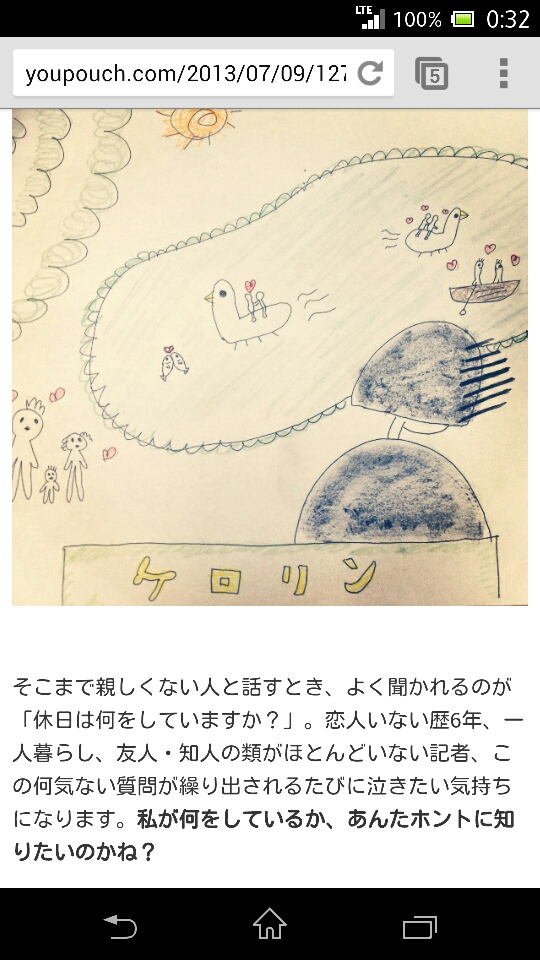 LTE 100% 0:32
youpouch.com/2013/07/09/127
5
ケロリン
そこまで親しくない人と話すとき、よく聞かれるのが
「休日は何をしていますか？」。恋人いない歴6年、一
人暮らし、友人・知人の類がほとんどいない記者、こ
の何気ない質問が繰り出されるたびに泣きたい気持ち
になります。私が何をしているか、あんたホントに知
りたいのかね？